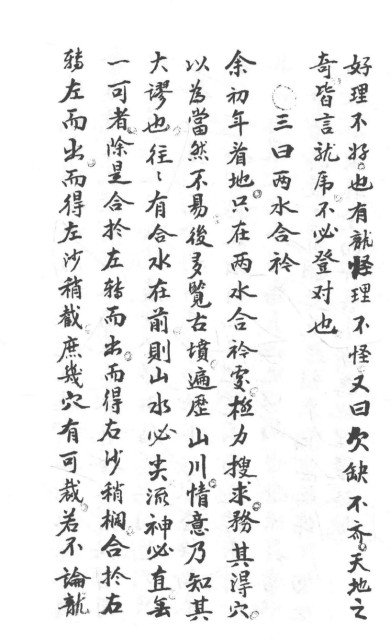 好理不好也有龍怪理不怪又曰欠缺不齐天地之
奇皆言就局不必登对也
三曰两水合衿
余初年看地只在两水合衿處極力搜求務其得穴
以為當然不易後多覧古墳遍歴山川情意乃知其
大謬也往〻有合水在前則山水必尖流神必直無
一可者除是合於左轉而出而得右沙稍欄合於右
轉左而出而得左沙稍截庶幾穴有可裁若不論龍